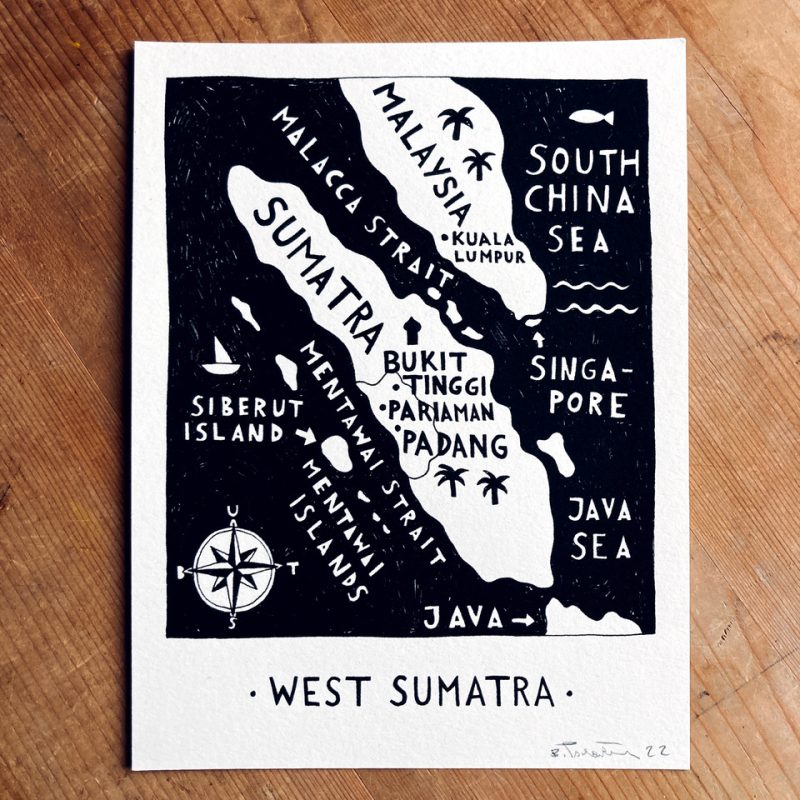 MALAYSIA
MALACCA STRAIT
SOUTH
CHINA
SEA
SUMATRA
• KUALA
LUMPUR
BUKIT
• TINGGI
• PARIAMAN
• PADANG
SINGA-
PORE
SIBERUT
ISLAND
MENTAWAI STRAIT
MENTAWAI
ISLANDS
JAVA
SEA
U
B
T
S
JAVA
• WEST SUMATRA •
22